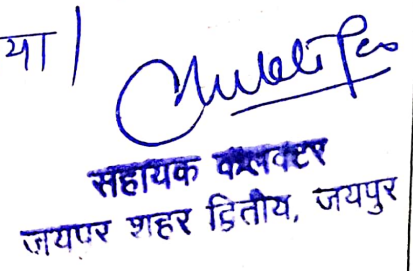 या।
सहायक कलक्टर
जयपुर शहर द्वितीय, जयपुर